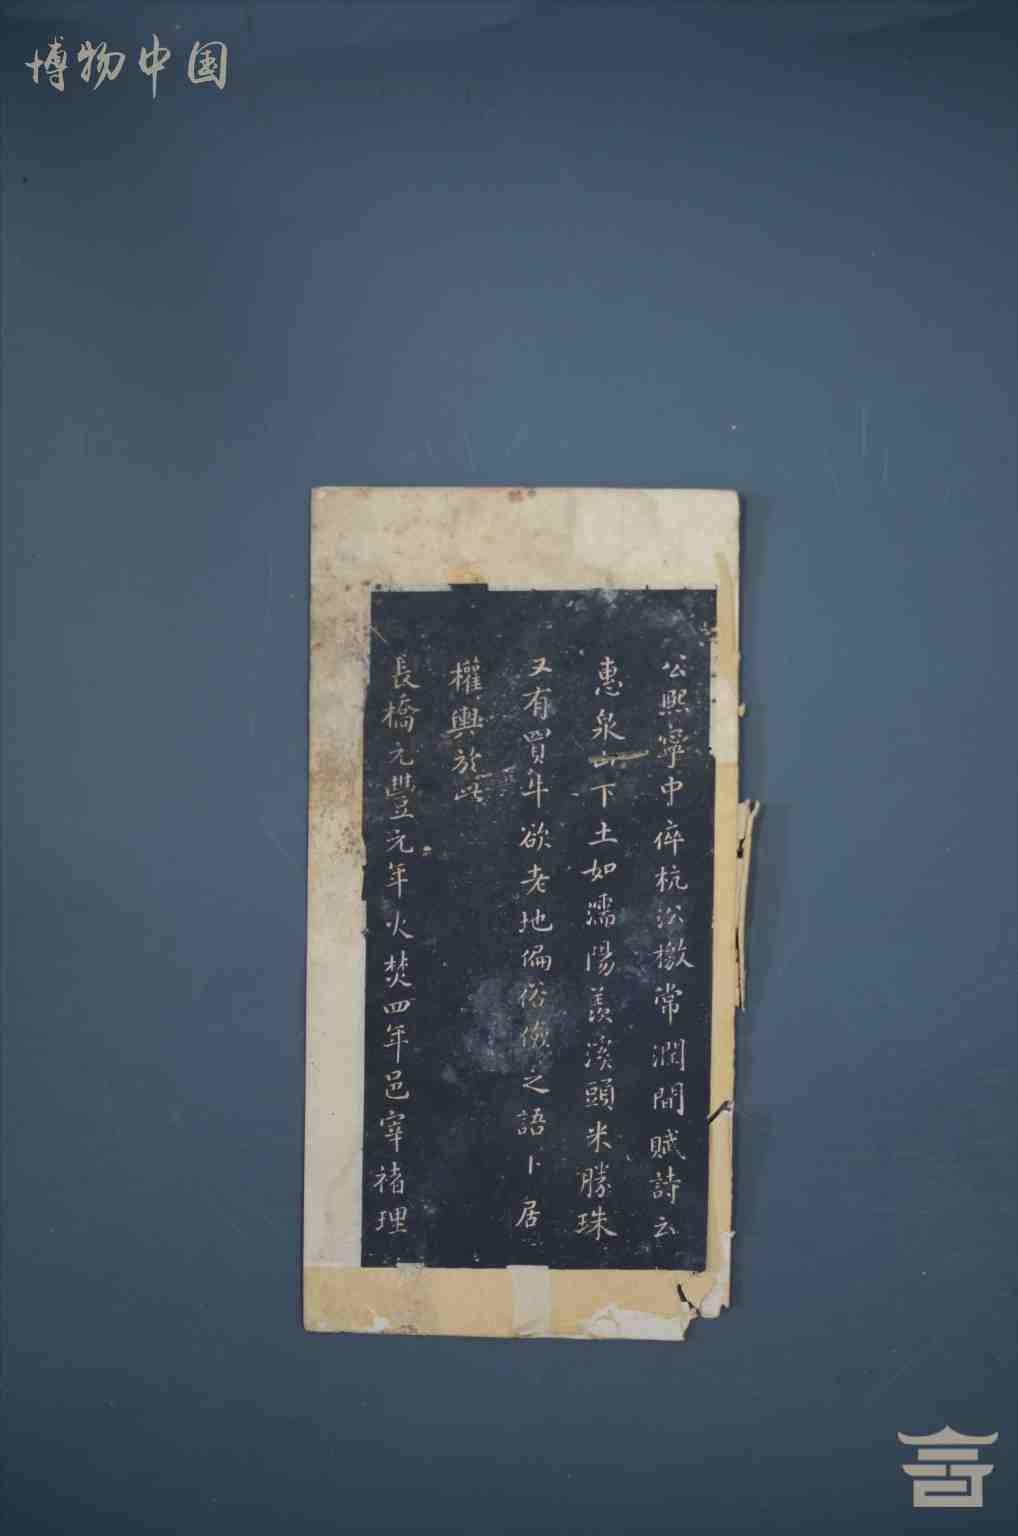 博物中国
公熙寧中倅杭沿檄常潤間賦詩云
惠泉山下土如濡陽羨溪頭米勝珠
又有買牛欲老地偏俗儉之語卜居
權輿於此
長橋元豐元年火焚四年邑宰褚理